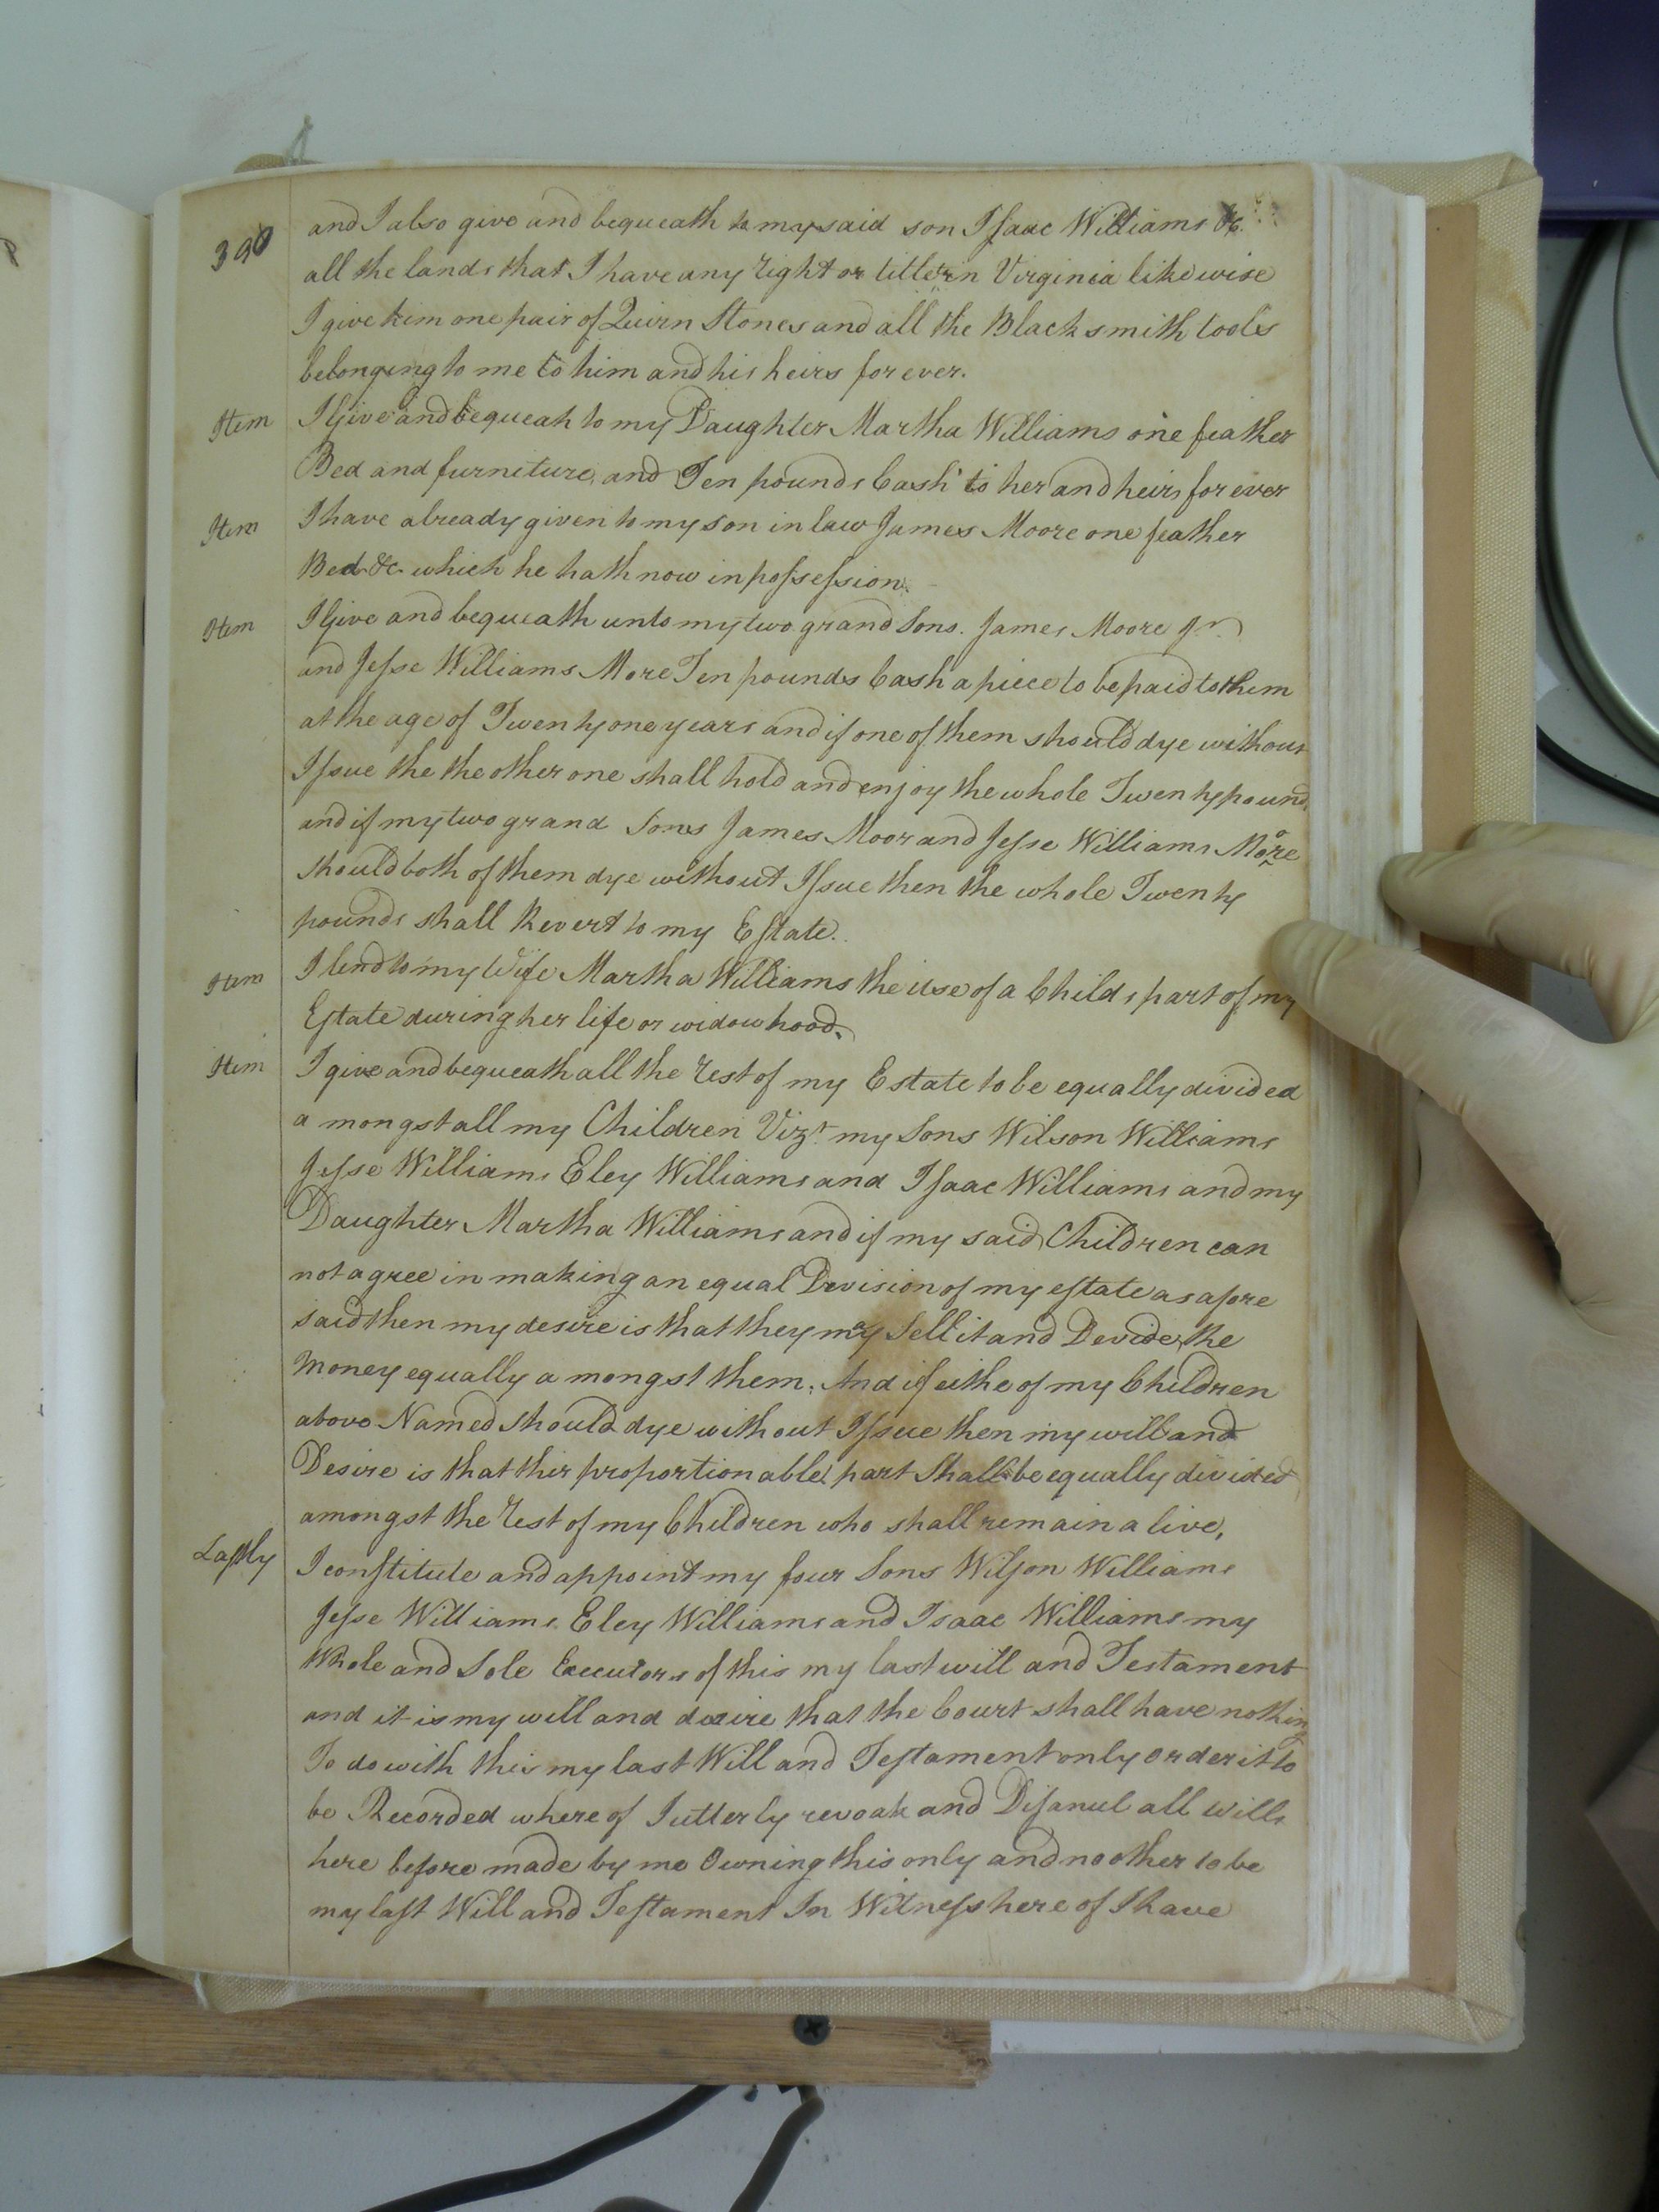 390
and I also give and bequeath to my said son Isaac Williams &c.
all the lands that I have any right or title in Virginia likewise
I give him one pair of Quirn Stones and all the Black smith tools
belonging to me to him and his heirs for ever.
Item I Give and bequeah to my Daughter Martha Williams one feather
Bed and furniture, and Ten pounds Cash to her and heirs for ever
Item I have already given to my son in law James Moore one feather
Bed &c which he hath now in possession.
Item I Give and bequeath unto my two grand Sons. James Moore Jr
and Jesse Williams More Ten pounds Cash a piece to be paid to them
at the age of Twenty one years and if one of them should dye without
Issue the the other one shall hold and enjoy the whole Twenty pound
and if my two grand Sons James Moor and Jesse Williams Moore
should both of them dye without Issue then the whole Twenty
pounds shall Revert to my Estate.
Item I lend to my Wife Martha Williams the use of a Childs part of my
Estate during her life or widow hood.
Item I give and bequeath all the rest of my Estate to be equally divided
a mongst all my Children Vizt. my Sons Wilson Williams
Jesse Williams Eley Williams and Isaac Williams and my
Daughter Martha Williams and if my said Children can
not agree in making an equal Division of my estate as afore
said then my desire is that they may Sell it and Devide the
Money equally a mongst them. And if eithe of my Children
above Named should dye without Issue then my will and
Desire is that thir proportionable part Shall be equally divided
amongst the rest of my Children who shall remain a live,
Lastly I constitute and appoint my four Sons Wilson Williams
Jesse Williams Eley Williams and Isaac Williams my
Whole and Sole Executors of this my last will and Testament
and it is my will and desire that the Court shall have nothing
To do with this my last Will and Testament only order it to
be Recorded where of I utterly revoak and Disanul all wills
here before made by me Owning this only and no other to be
my last Will and Testament In Witness here of I have